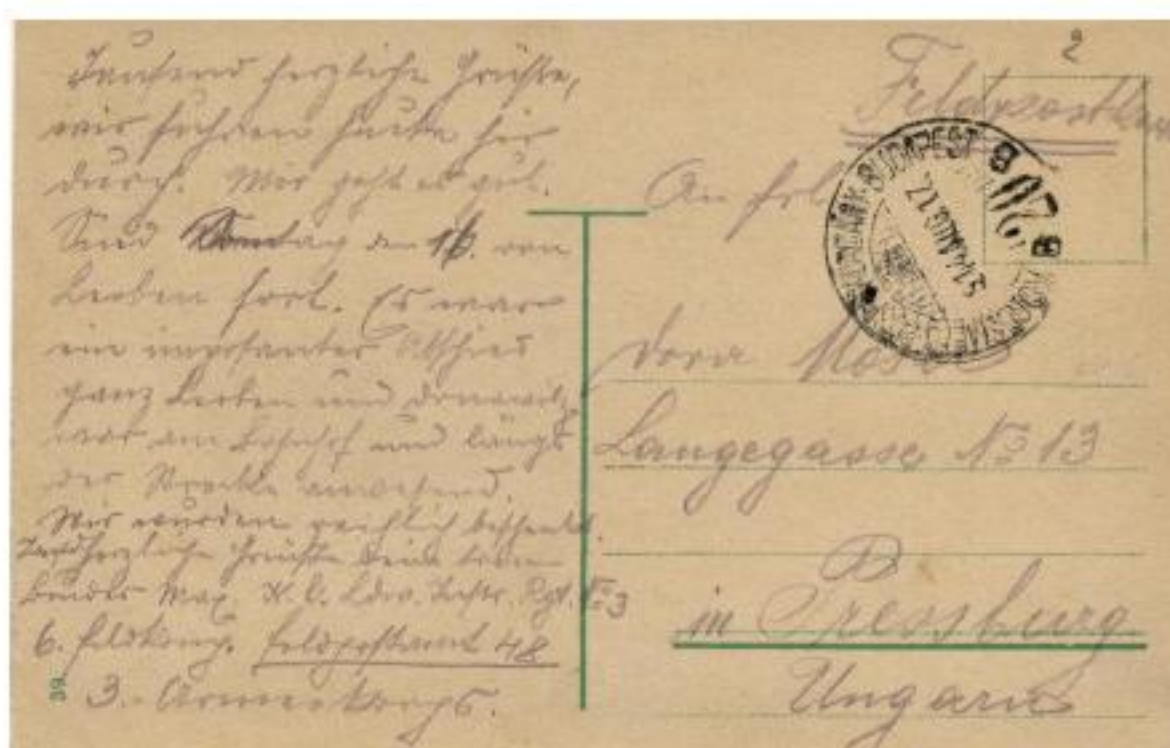 Tausend herzliche Grüße,
wir fuhren heute hier
durch. Mir geht es gut.
Sind Sonntag den 16. von
Leoben fort. Es war
ein imposanter Abschied
ganz Leoben und Donawitz
war am Bahnhof und längs
der Strecke anwesend.
Wir wurden reichlich beschenkt.
herzliche Grüße Dein treuer
Bruder Max. K. k. Ldw. Inftr. Rgt. No 3
6. Feldkomp. Feldpostamt 48
3. Armeekorps.
39
2
Feldpostkarte
An Frl
BUDAPEST
Dora
Langegasse No 13
in Pressburg
Ungarn